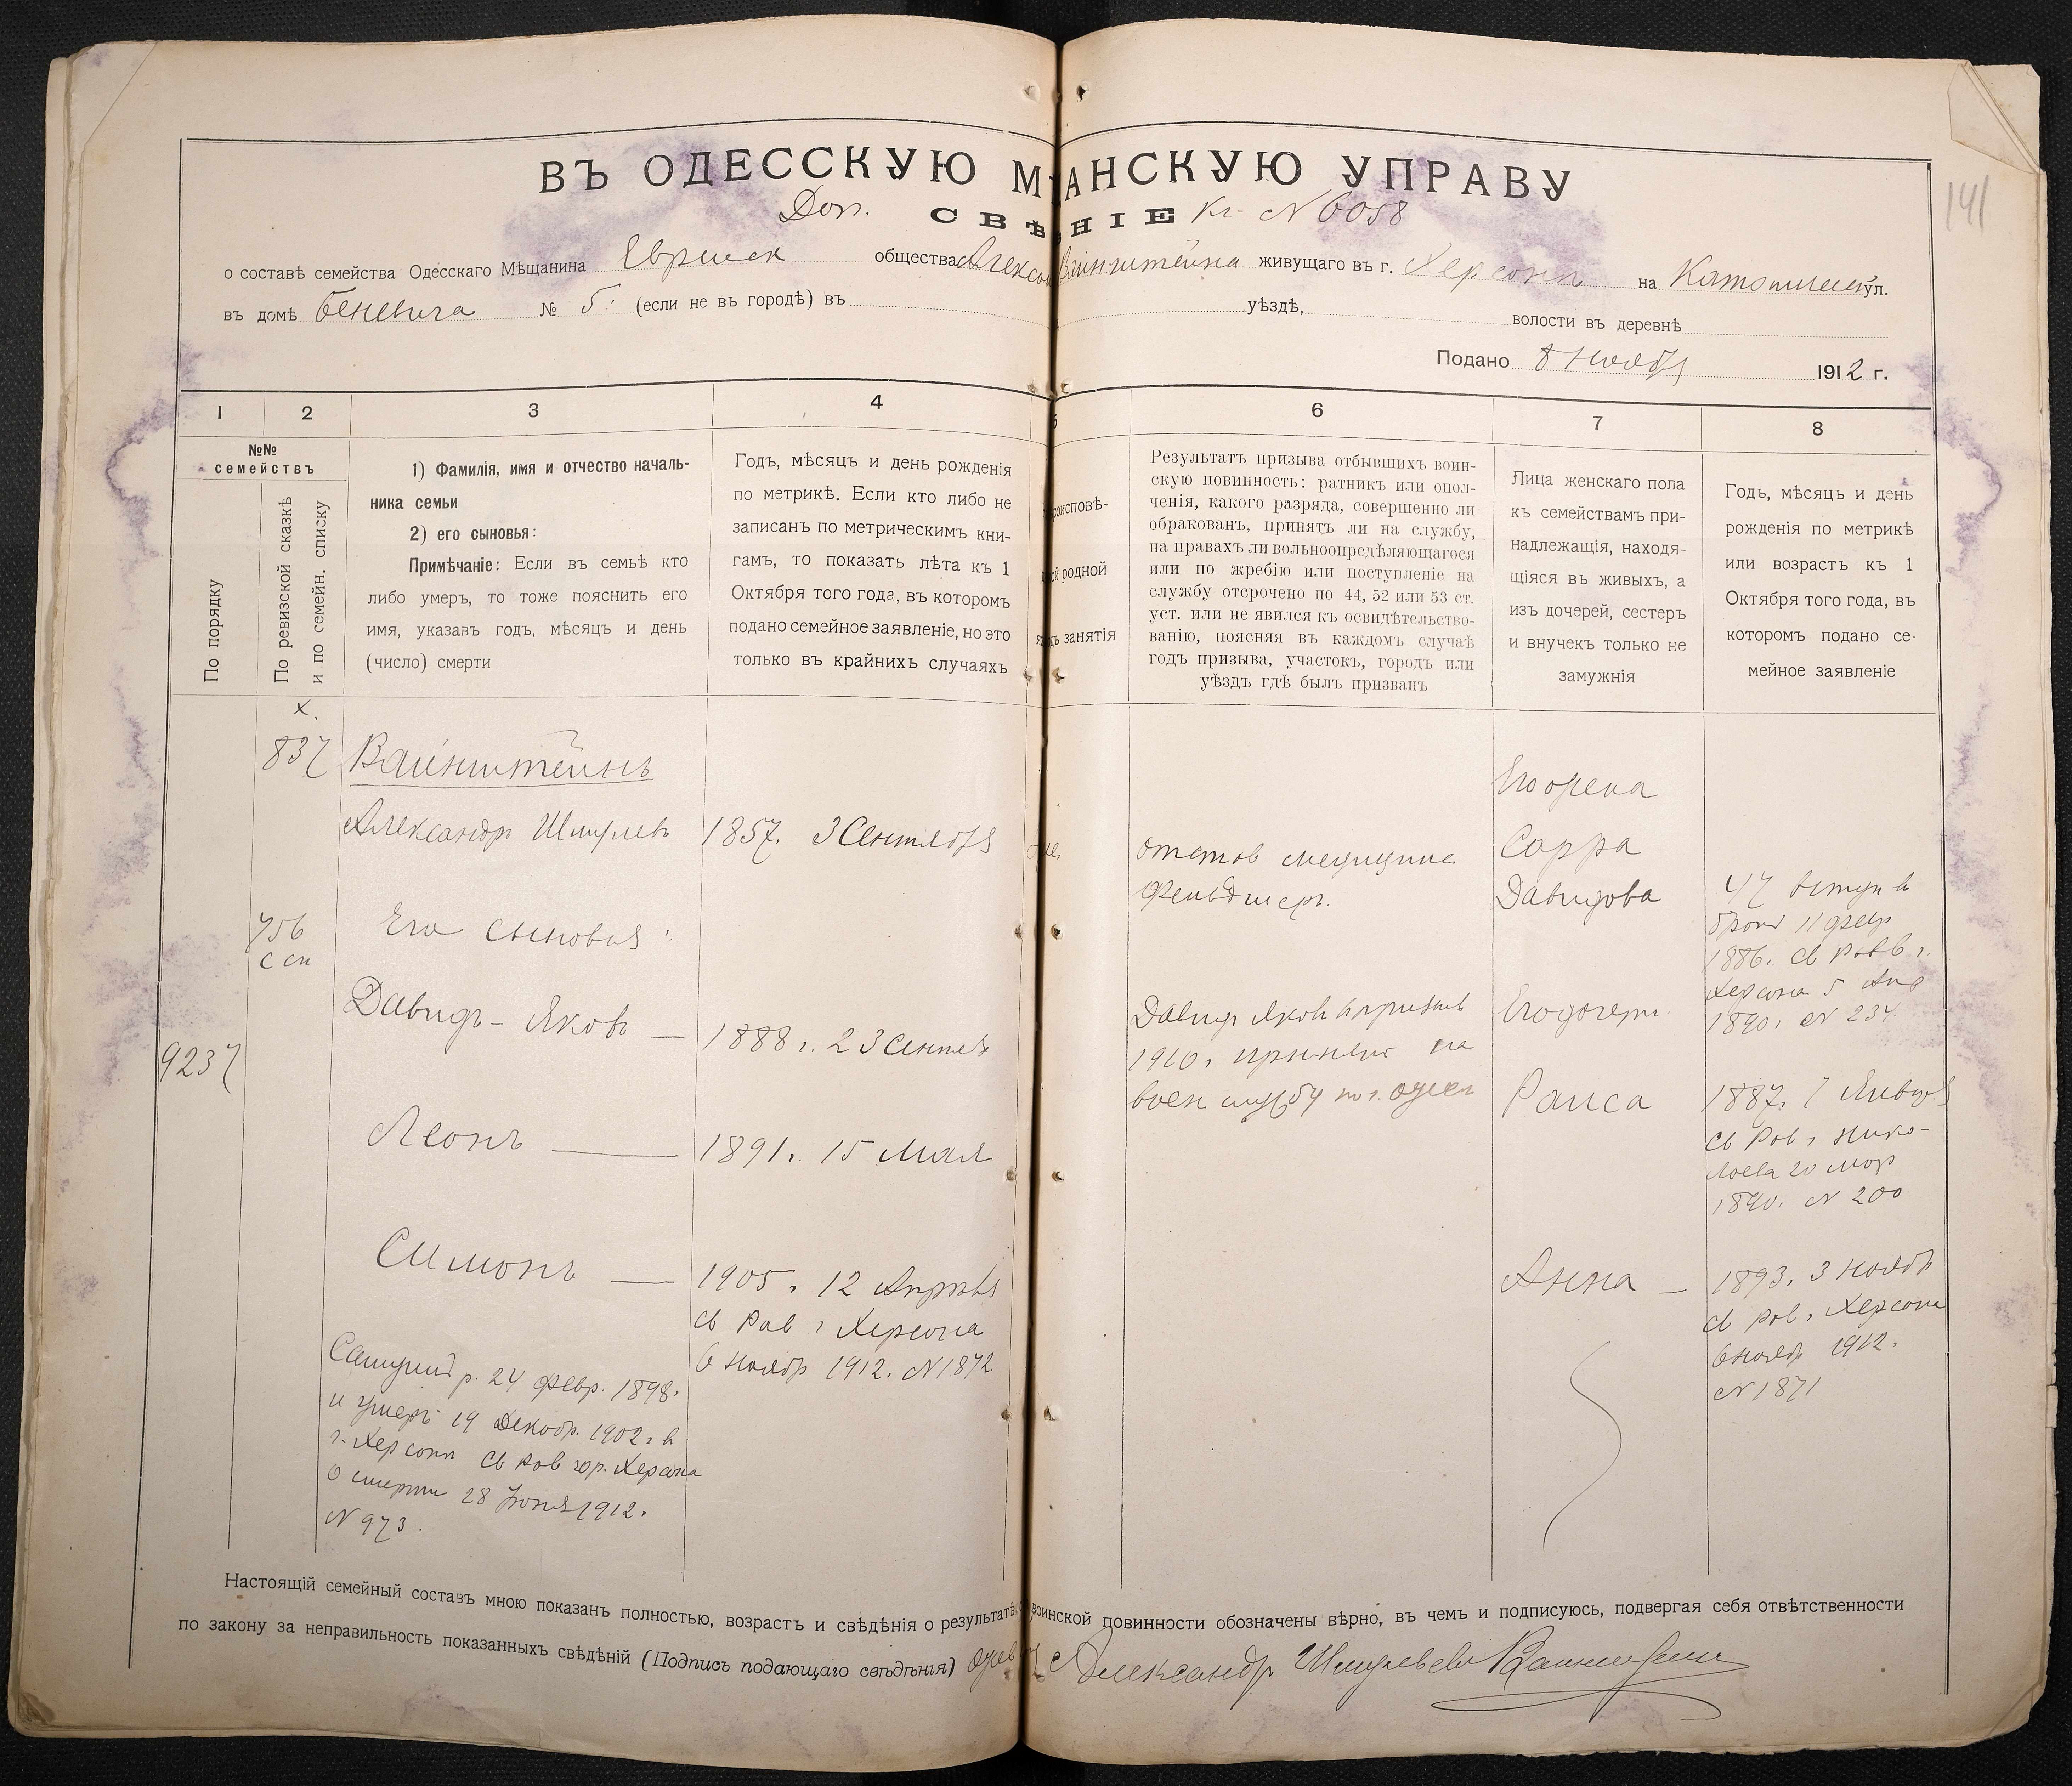 141
ВЪ ОДЕССКУЮ М АНСКУЮ УПРАВУ
Доп. СВѢ НІЕ Кг № 6058
о составѣ семейства Одесскаго Мѣщанина Еврейск общества Алексан Вайнштейна живущаго въ г. Херсонѣ на ул.
въ домѣ Беневича № 5 (если не въ городѣ) въ уѣздѣ, волости въ деревнѣ
Подано 8 Ноября 1912 г.
1 2 3 4 5 6 7 8
№№ семействъ
По порядку
По ревизской сказкѣ и по семейн. списку
1) Фамилія, имя и отчество началь-
ника семьи
2) его сыновья:
Примѣчаніе: Если въ семьѣ кто
либо умеръ, то тоже пояснить его
имя, указавъ годъ, мѣсяцъ и день
(число) смерти
Годъ, мѣсяцъ и день рожденія
по метрикѣ. Если кто либо не
записанъ по метрическимъ кни-
гамъ, то показать лѣта къ 1
Октября того года, въ которомъ
подано семейное заявленіе, но это
только въ крайнихъ случаяхъ
роисповѣ-
ой родной
ъ занятія
Результатъ призыва отбывшихъ воин-
скую повинность: ратникъ или опол-
ченія, какого разряда, совершенно ли
обракованъ, принятъ ли на службу,
на правахъ ли вольноопредѣляющагося
или по жребію или поступленіе на
службу отсрочено по 44, 52 или 53 ст.
уст. или не явился къ освидѣтельство-
ванію, поясняя въ каждомъ случаѣ
годъ призыва, участокъ, городъ или
уѣздъ гдѣ былъ призванъ
Лица женскаго пола
къ семействамъ при-
надлежащія, находя-
щіяся въ живыхъ, а
изъ дочерей, сестеръ
и внучекъ только не
замужнія
Годъ, мѣсяцъ и день
рожденія по метрикѣ
или возрастъ къ 1
Октября того года, въ
которомъ подано се-
мейное заявленіе
х.
837
756
с сп
9237
Вайнштейнъ
Александръ Шмулевъ 1857. 3 Сентября
Его сыновья:
Давидъ-Яковъ — 1888 г. 23 Сентяб
Леонъ — 1891 г. 15 Мая
Симонъ — 1905 г. 12 Апрѣля
св Рав г Херсона
6 Ноябр 1912. № 1872
Самуилъ р. 24 февр. 1898.
и умеръ 19 Декабр. 1902 г. в
г. Херсонѣ св Рав гор. Херсона
о смерти 28 Іюня 1912.
№ 973.
медицине
Фельдшеръ.
Давид Яков в призыв
1910 г. принят на
воен службу по г. Одес
Его жена
Сарра
Давидова
47 вступ в
брак 11 февр
1886. св Равв г.
Херсона 5 Апр
1890. № 234
Его дочери.
Раиса
1887. 7 Январ
св Рав г Нико-
лаева 20 мар
1890. № 200
Анна —
1893. 3 Ноябр
св Рав г. Херсона
6 Ноябр 1912.
№ 1871
Настоящій семейный составъ мною показанъ полностью, возрастъ и свѣдѣнія о результатѣ воинской повинности обозначены вѣрно, въ чемъ и подписуюсь, подвергая себя отвѣтственности
по закону за неправильность показанныхъ свѣдѣній (Подпись подающаго свѣдѣнія) Александръ Шмулевъ Вайнштейнъ